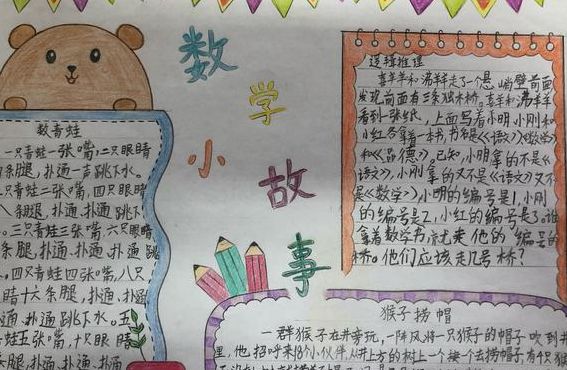 数学小故事
数青蛙
一只青蛙一张嘴,二只眼睛
条腿,扑通一声跳下水。
只青蛙二张嘴,四只眼睛
八条腿,扑通、扑通跳下
。三只青蛙三张嘴六只眼睛
条腿,扑通、扑通、扑通跳
。四只青蛙四张嘴,八只
睛十六条腿,扑通、扑通
通、扑通跳下水。五
蛙五张嘴,十只眼睛
条腿,扑通、扑通、扑通
逻辑推理
喜羊羊和沸羊羊走了个悬峭壁前面
发现前面有三条独木桥。喜羊羊和沸羊羊
看到一张纸,上面写着小明小刚和
小红各拿着一本书,书名是《语文》《数学》
和《品德》。已知,小明拿的不是《
语文》,小刚拿的又不是《语文》又不
是《数学》小明的编号是1,小刚
的编号是2,小红的编号是3。谁
拿着数学书,就走他的编号的
桥。他们应该走几号桥?
猴子捞帽
一群猴子在井旁玩,一阵风将一只猴子的帽子吹到井
里,他招呼来18个小伙伴,从井上方的树上一个接一个去捞帽子,有4只猴